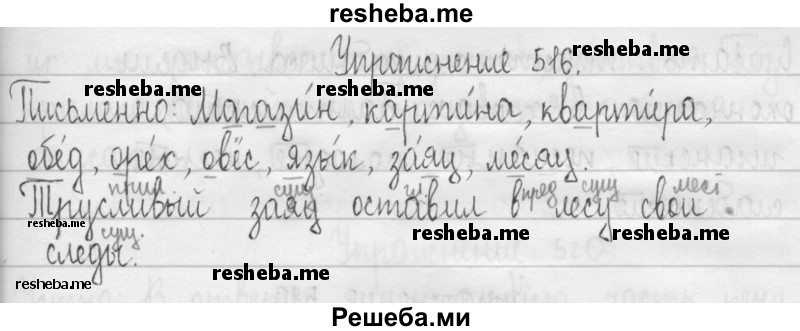 resheba.me
Упражнение 516.
resheba.me
resheba.me
resheba.me
Письменно: Магази́н, карти́на, кварти́ра,
обе́д, оре́х, овёс, язы́к, за́яц, ме́сяц.
прил. сущ. гл. пред сущ мест
Трусливый заяц оставил в лесу свои
resheba.me
resheba.me
сущ.
следы.
resheba.me
resheba.me
resheba.me
Решеба.ми